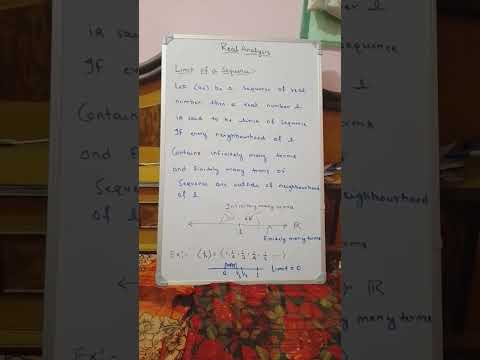 Real Analysis
Limit of a Sequence:-
Let (an) be a sequence of real
number then a real number l
is said to be limit of sequence
If every neighbourhood of l
Contains infinitely many terms
and finitely many terms of
Sequence are outside of neighbourhood
of l
Infinitely many terms
l
R
Finitely many terms
Ex:- (1/n) = (1, 1/2, 1/3, 1/4, 1/5 ...)
0 1/3 1/2 1 Limit = 0